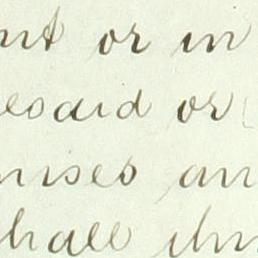 nt or in
esaid or
mises an
hall